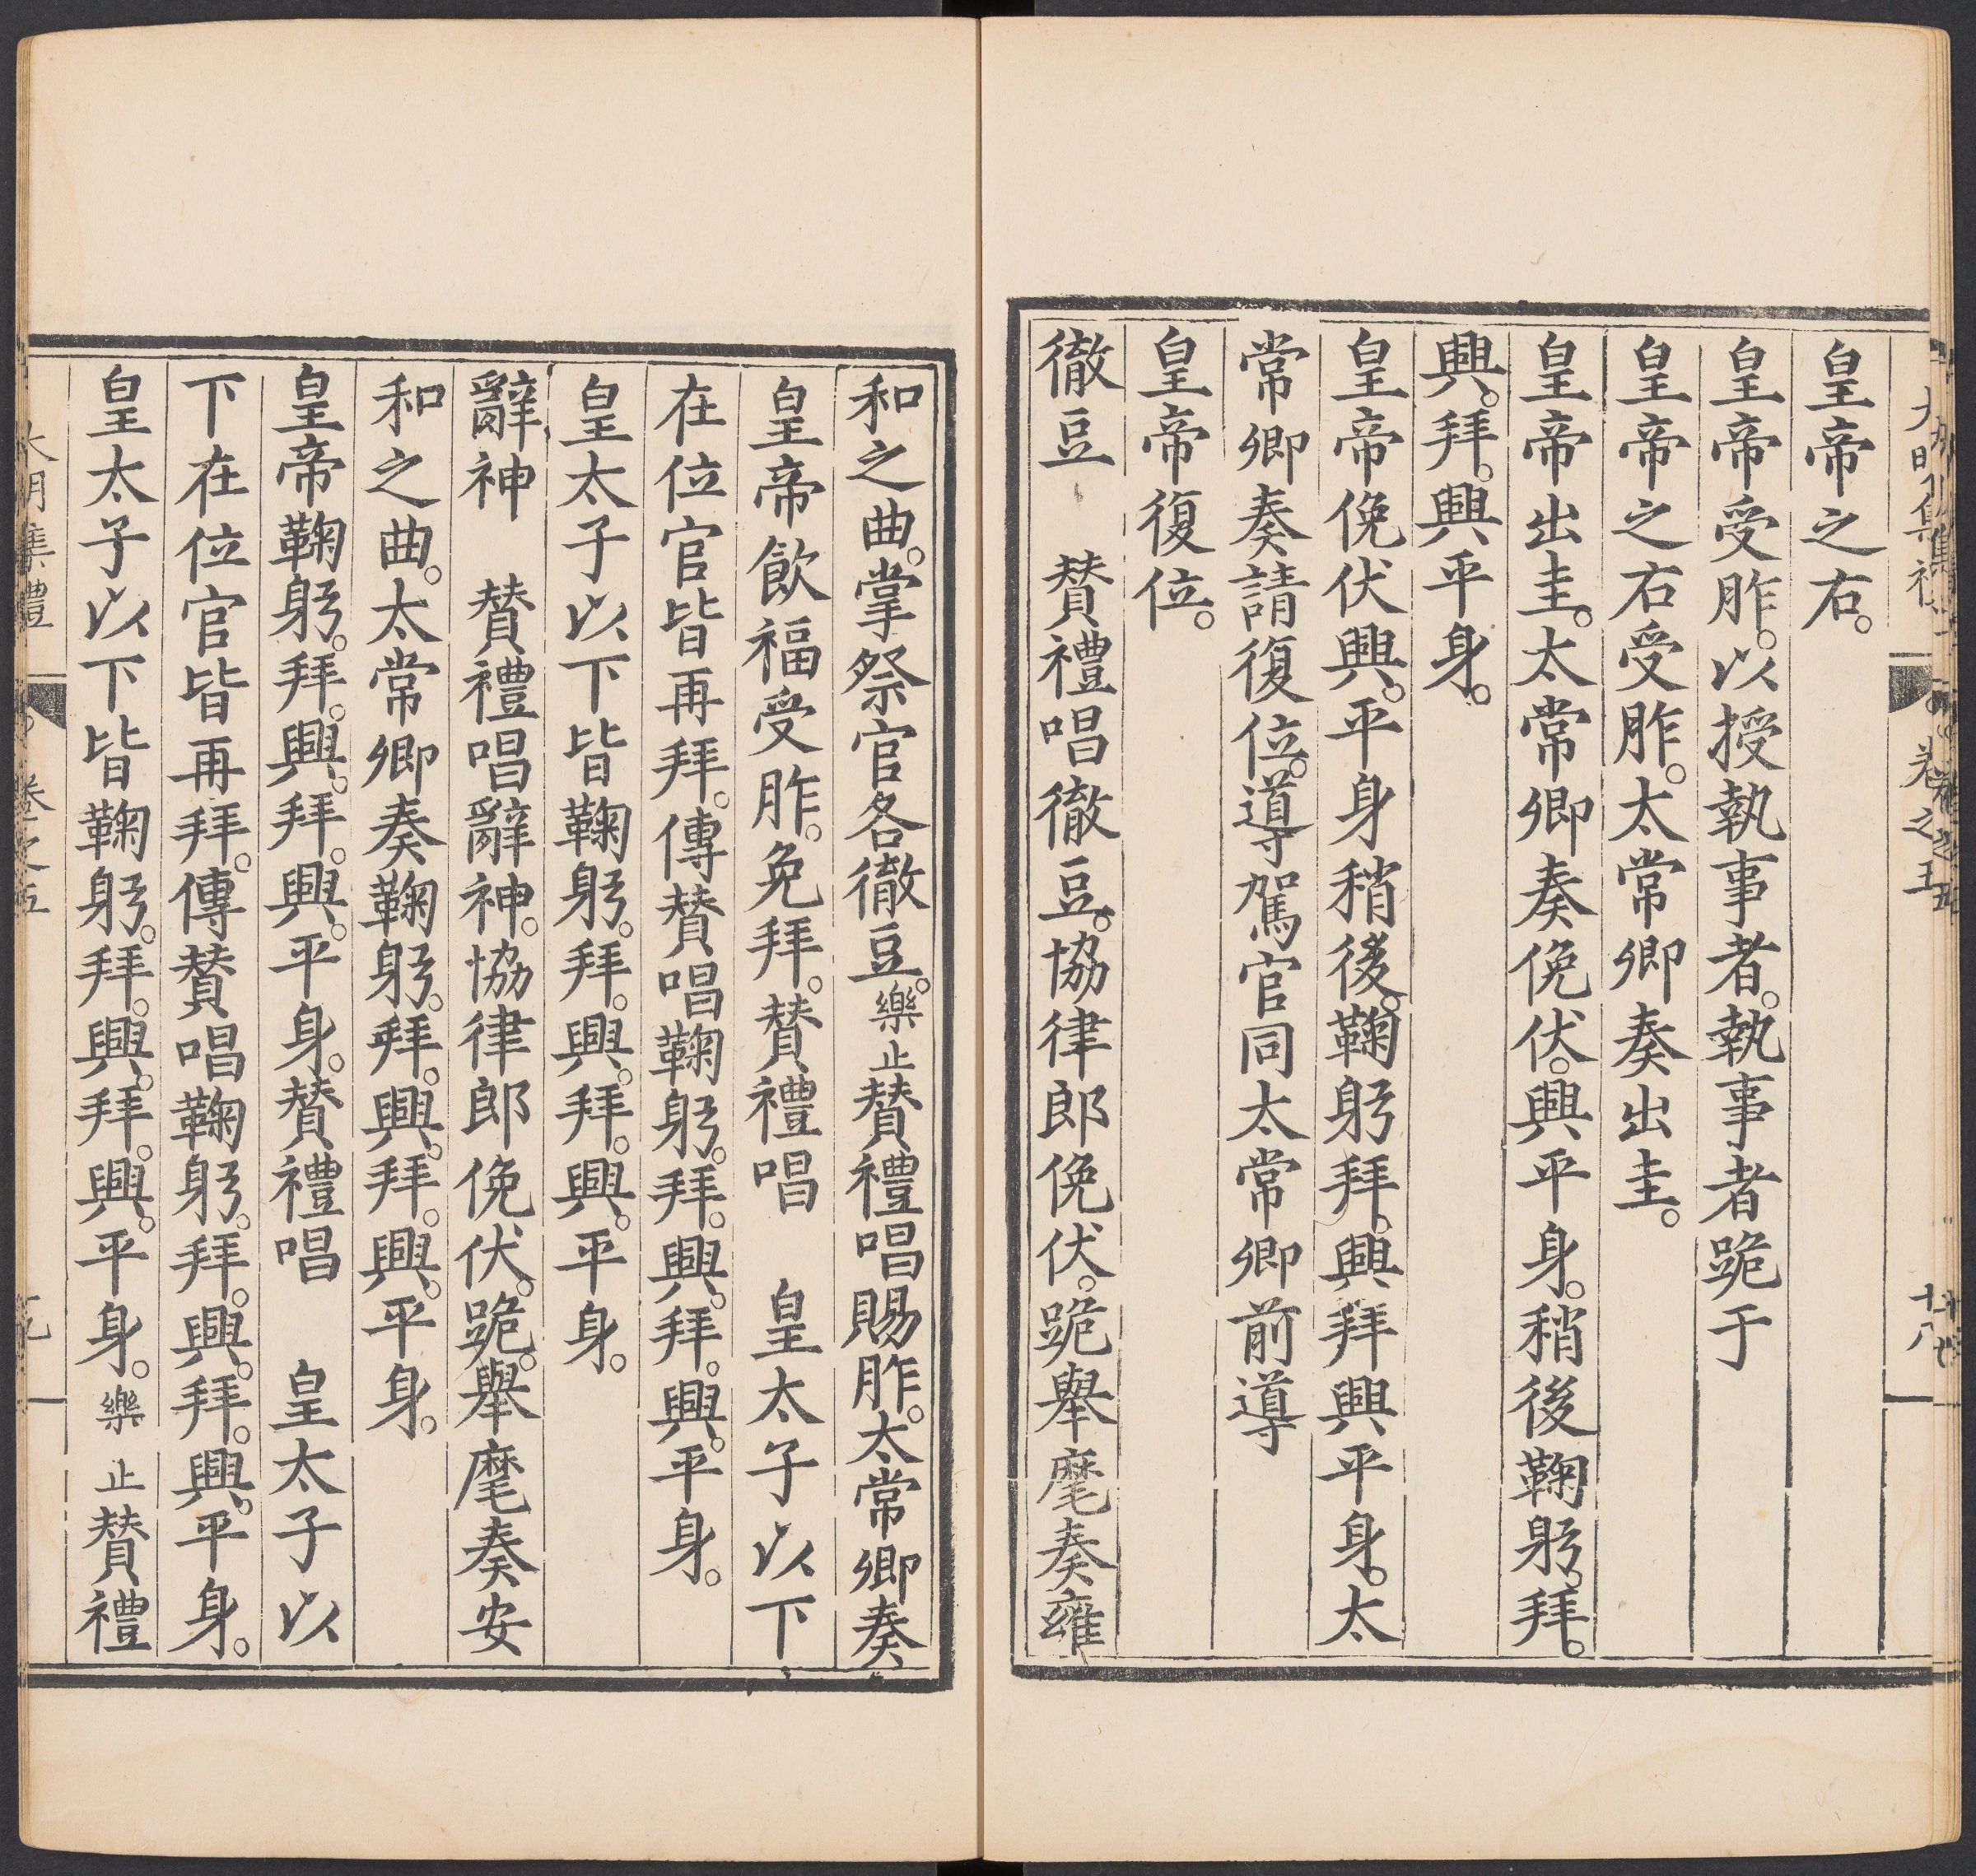 皇帝之右。
皇帝受胙。以授執事者。執事者跪于
皇帝之右受胙。太常卿奏出圭。
皇帝出圭。太常卿奏俛伏。興平身。稍後鞠躬。拜。
興。拜。興平身。
皇帝俛伏興。平身稍後。鞠躬拜。興拜興平身。太
常卿奏請復位。導駕官同太常卿前導
皇帝復位。
徹豆　贊禮唱徹豆。協律郎俛伏。跪舉麾奏雍
和之曲。掌祭官各徹豆。樂止贊禮唱賜胙。太常卿奏
皇帝飲福受胙。免拜。贊禮唱　皇太子以下
在位官皆再拜。傳贊唱鞠躬。拜。興。拜。興。平身。
皇太子以下皆鞠躬。拜。興。拜。興。平身。
辭神　贊禮唱辭神。協律郎俛伏。跪。舉麾奏安
和之曲。太常卿奏鞠躬。拜。興。拜。興。平身。
皇帝鞠躬。拜。興。拜。興。平身。贊禮唱　皇太子以
下在位官皆再拜。傳贊唱鞠躬。拜。興。拜。興。平身。
皇太子以下皆鞠躬。拜。興。拜。興。平身。樂止贊禮
大明集禮　卷之五